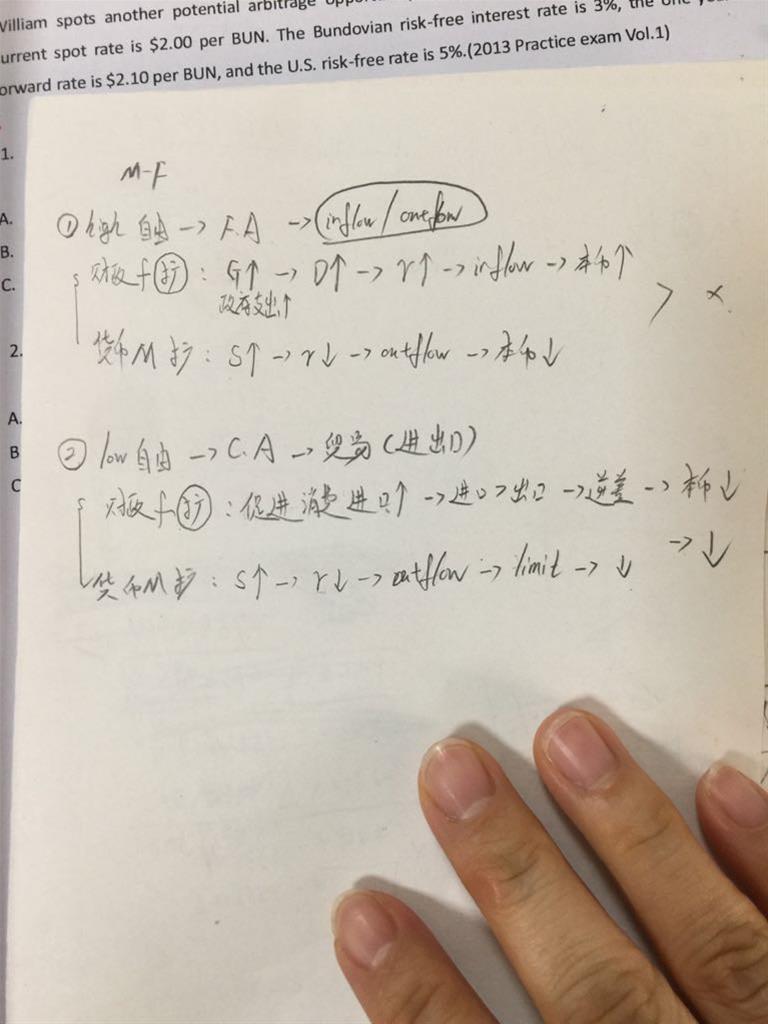 William spots another potential arbitrage
current spot rate is $2.00 per BUN. The Bundovian risk-free interest rate is 3%, the one
orward rate is $2.10 per BUN, and the U.S. risk-free rate is 5%.(2013 Practice exam Vol.1)
1.
A.
B.
C.
2.
A.
B
C
M-F
① high 自由 → F.A → inflow / outflow
财政 f 扩 : G↑ → D↑ → r↑ → inflow → 本币↑
政府支出↑
> ×.
货币 M 扩 : S↑ → r↓ → outflow → 本币↓
② low 自由 → C.A → 贸易 (进出口)
财政 f 扩 : 促进消费进口↑ → 进口>出口 → 逆差 → 本币↓
→ ↓
货币 M 扩 : S↑ → r↓ → outflow → limit → ↓